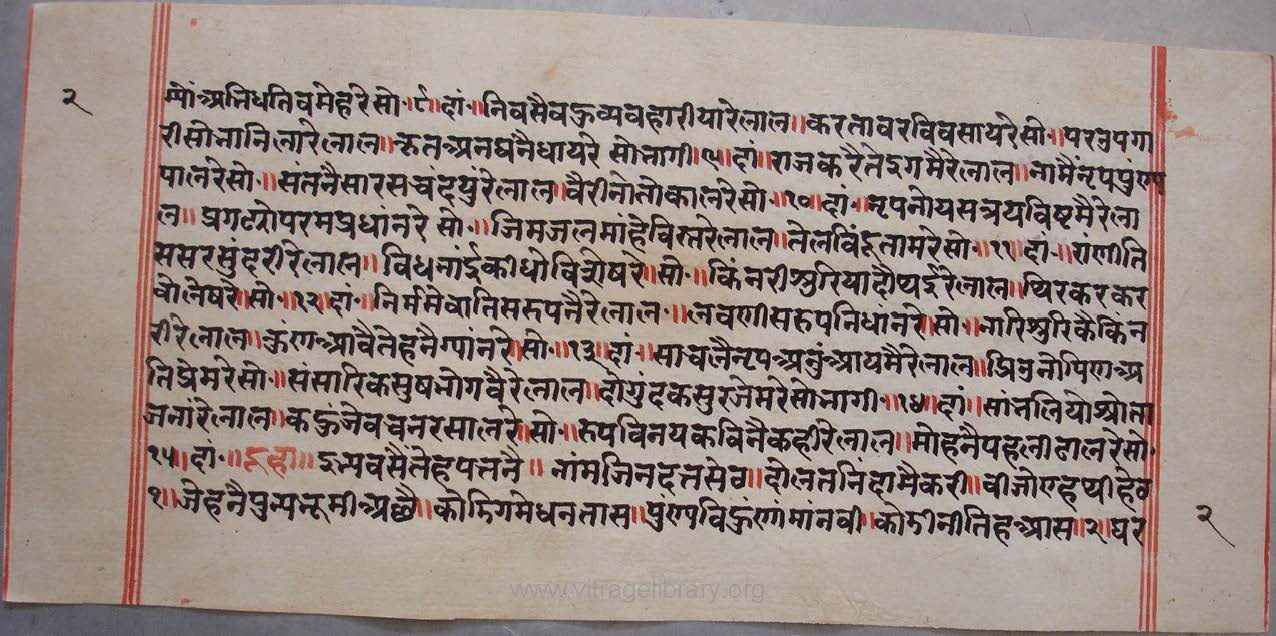 २
ष्पों अतिधतिव मेहरे सो॰ ८ हां॰ निवसै व ऊव्यवहारीया रे लाल॥ करता वर विवसाय रे सो॰॥ पर उपगा
री सोनानिला रे लाल॥ क्रतअनघनैधाय रे सोनागी॥९॥ हां॥ राज करै ते डगमै रे लाल॥ नामैं नृप पुंण्य
पाल रे सो॰॥ संतनै सारस चंद यु रे लाल॥ वैरीनो तो काल रे सो॰॥१०॥ हां॰॥ नृपनो यस त्रय विष्टमै रे ला
ल॥ प्रगट्यो परम प्रधांन रे सो॰॥ जिम जल मांहे विस्तरे लाल॥ तेल विंदू ताम रे सो॰॥११॥ हां॰॥ रांणी ति
स सर सुंदरी रे लाल॥ विधनांई कीधो विशेष रे॥ सो॰॥ किंनरी सुरिया दौप्यई रे लाल॥ थिर कर कर
वो लेष रे॥ सो॰॥१२॥ हां॰॥ निर्मम वाति सरुपनै रे लाल॰॥ लवणी स रुप निधांन रे॥ सो॰॥ नारि सुरि कै किंन
री रे लाल॥ कुंण आवै तेहनै ग्यांन रे॥ सो॰॥१३॥ हां॰॥ साचलै नृप अनुं आयमै रे लाल॥ प्रिउनो पिण अ
ति प्रेम रे सो॰॥ संसारिक सुष भोगवै रे लाल॥ दोगुंदक सुर जेम रे सोनागी॰॥१४॥ हां॥ सांनलियो श्रोता
जनां रे लाल॥ कऊं जे वचन रसाल रे॥ सो॰॥ रुप विनय कविनै कही रे लाल॥ मोहनै पहली ढाल रे सो॰
१५॥ हां॰॥ दूहा॥ इन्य वसै तेह पतनै॥ नांम जिनदत सेव॥ दोलत निंदामै करी॥ वीजो एह थी हेव
१॥ जेहनै पुन्य नूमी अछै॥ कोडिगमे धन तास॥ पुंण्य विऊंणा मांनवी॥ कोडीनी तिह आस॥२॥ घर
२
www.vitragelibrary.org